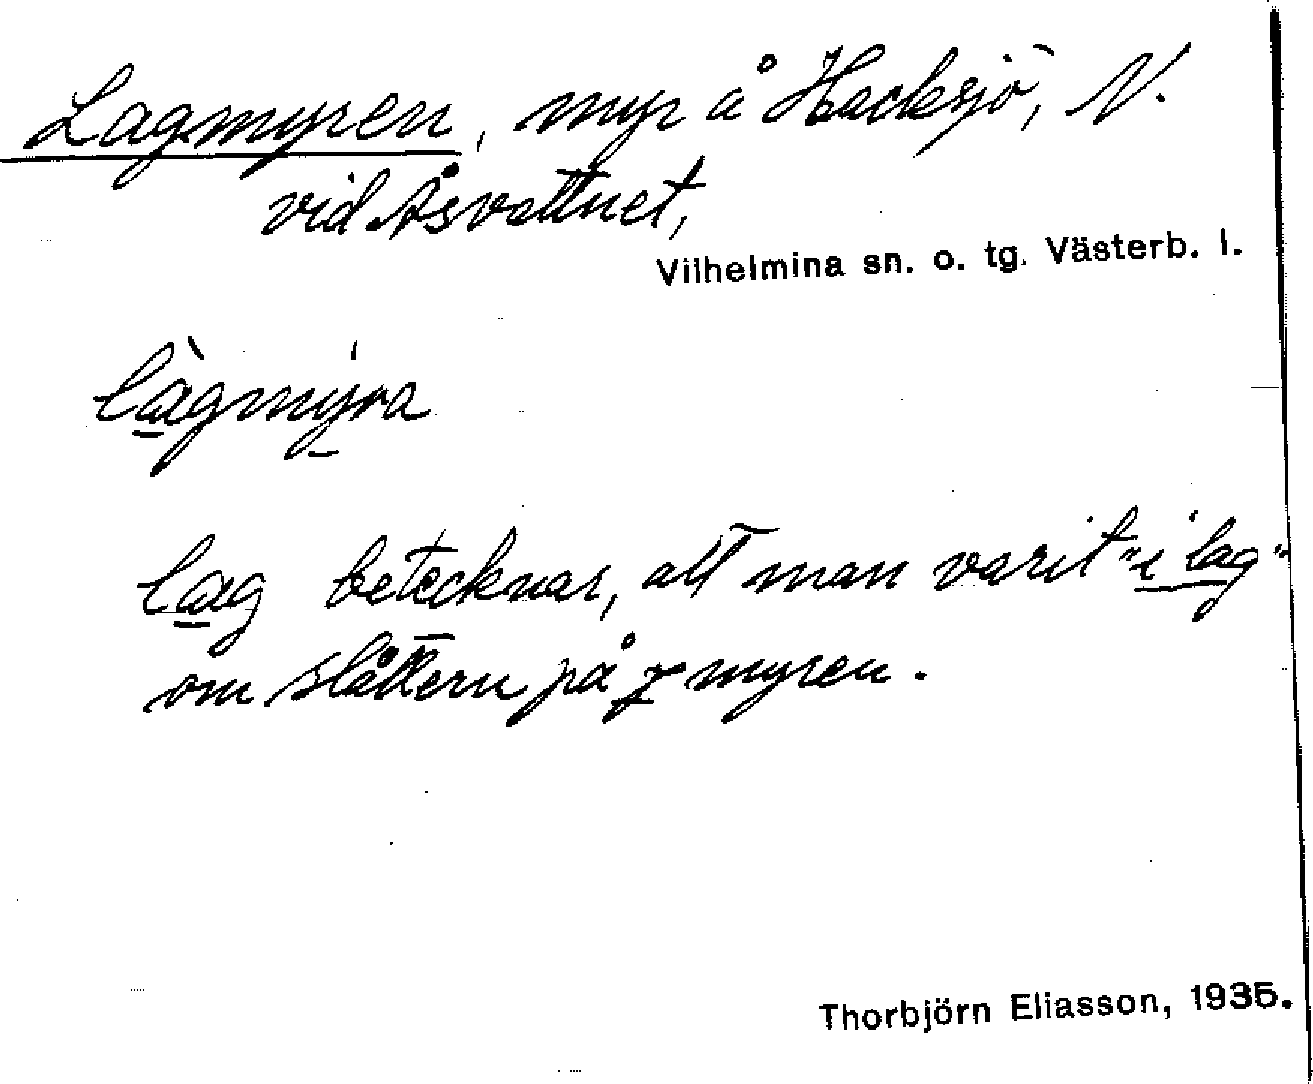 Lagmyren, myr å Hacksjö, N.
vid Åsvattnet,
Vilhelmina sn. o. tg. Västerb. l.
làgmýra
lag betecknar, att man varit "i lag"
om slåttern på myren.
Thorbjörn Eliasson, 1935.